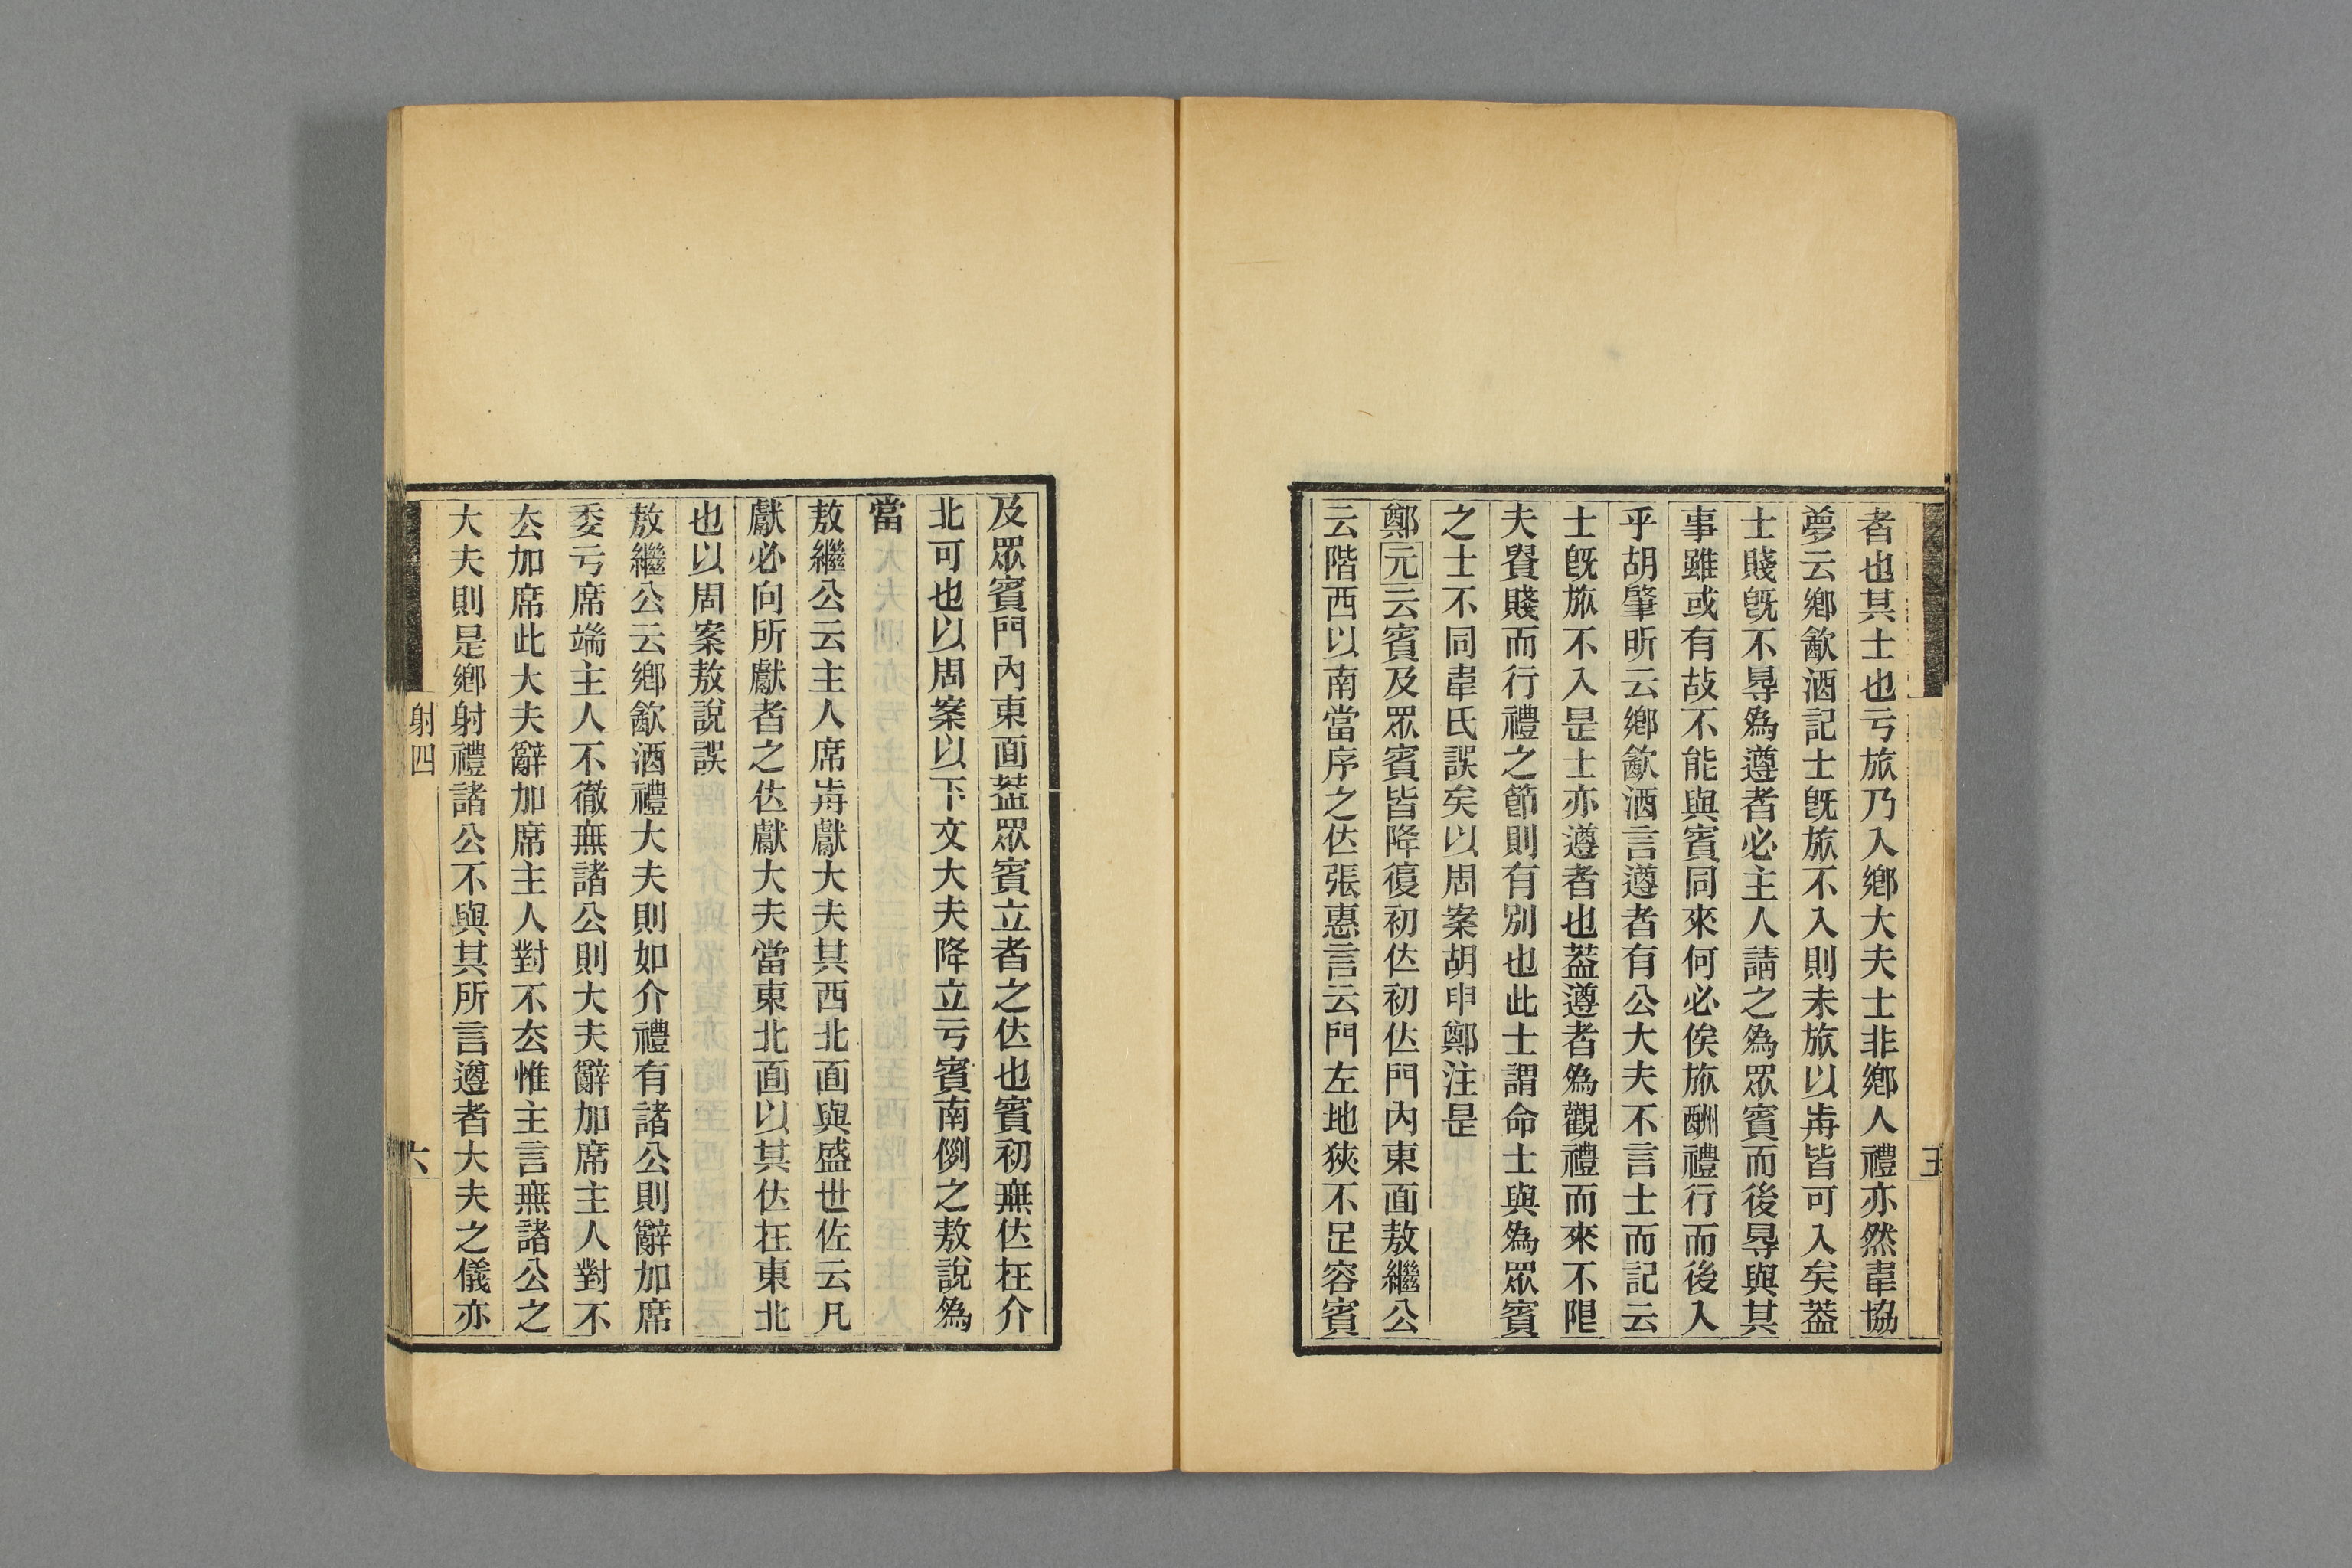 者也其士也亏旅乃入鄉大夫士非鄉人禮亦然韋協
夢云鄉歙酒記士旣旅不入則未旅以歬皆可入矣葢
士賤旣不㝵爲遵者必主人請之爲眾賓而後㝵與其
事雖或有故不能與賓同來何必俟旅酬禮行而後入
乎胡肇昕云鄉歙酒言遵者有公大夫不言士而記云
士旣旅不入是士亦遵者也葢遵者爲觀禮而來不限
夫貴賤而行禮之節則有別也此士謂命士與爲眾賓
之士不同韋氏誤矣以周案胡申鄭注是
鄭元云賓及眾賓皆降復初位初位門內東面敖繼公
云階西以南當序之位張惠言云門左地狹不足容賓
五
及眾賓門內東面葢眾賓立者之位也賓初無位在介
北可也以周案以下文大夫降立亏賓南例之敖說爲
當
敖繼公云主人席歬獻大夫其西北面與盛世佐云凡
獻必向所獻者之位獻大夫當東北面以其位在東北
也以周案敖說誤
敖繼公云鄉歙酒禮大夫則如介禮有諸公則辭加席
委亏席端主人不徹無諸公則大夫辭加席主人對不
厺加席此大夫辭加席主人對不厺惟主言無諸公之
大夫則是鄉射禮諸公不與其所言遵者大夫之儀亦
射四
六